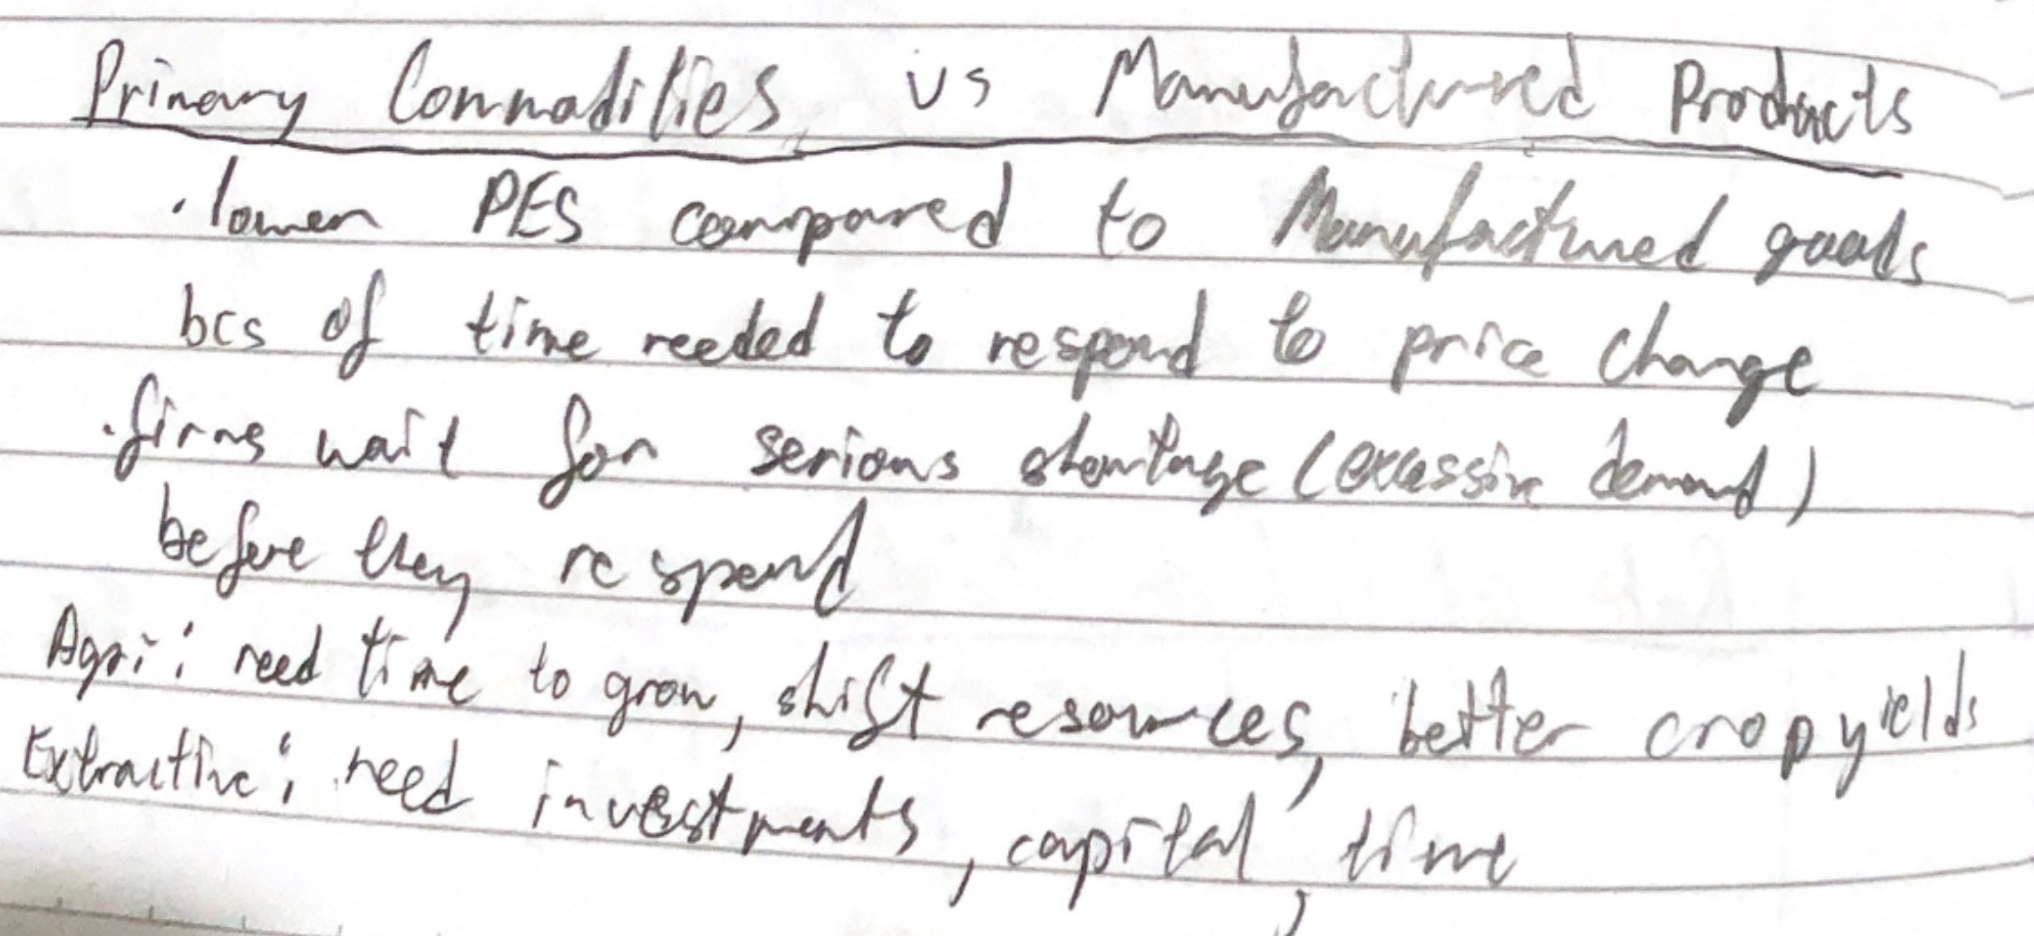 Primary Commodities vs Manufactured Products
· lower PES compared to Manufactured goods
bcs of time needed to respond to price change
· firms wait for serious shortage (excessive demand)
before they respond
Agri: need time to grow, shift resources, better crop yields
Extractive: need investments, capital, time